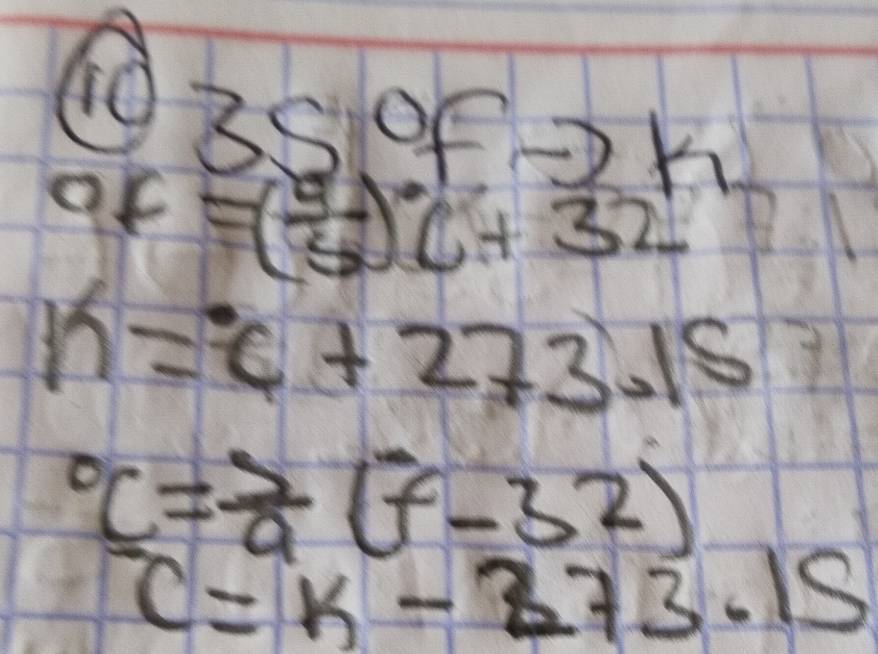 10 35 °F → K
°F = (9/5) °C + 32
K = °C + 273.15
°C = 5/9 (F - 32)
°C = K - 273.15